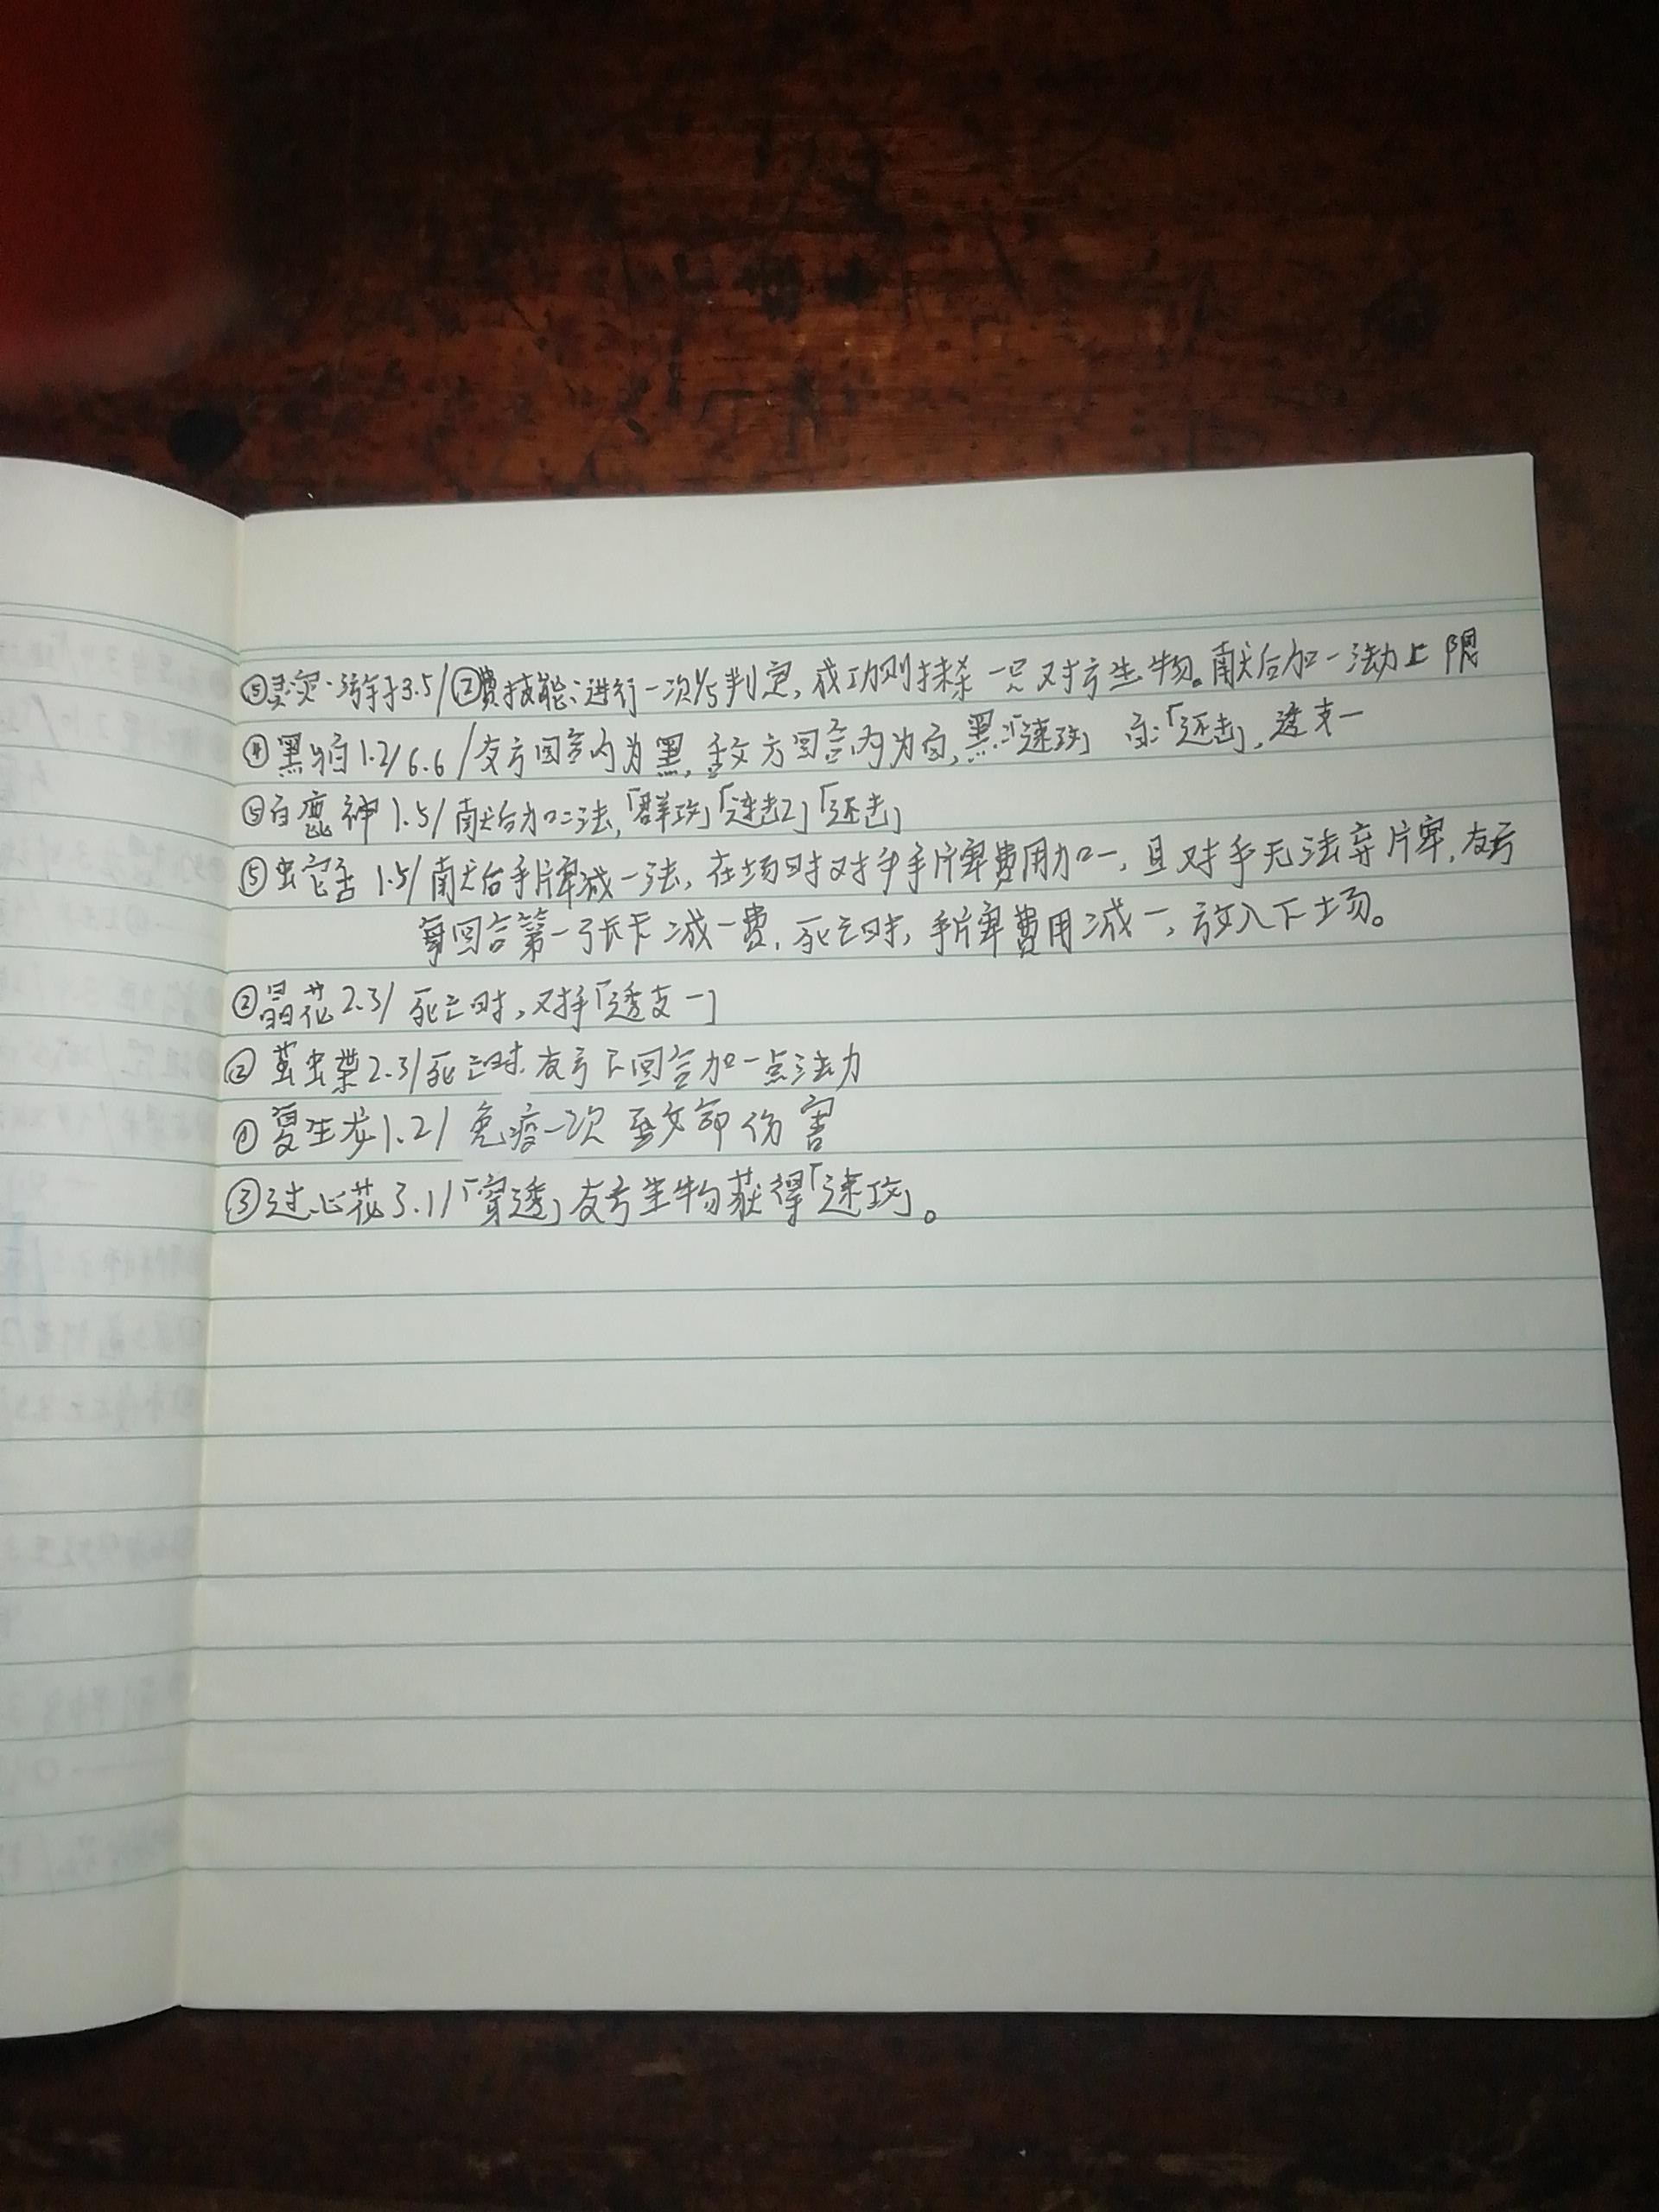 ⑤灵灾·游轩3.5/②費技能：进行一次1/5判定，成功则抹杀一只对方生物。献后加一法力上限
④黑白1.2/6.6/友方回合内为黑，敌方回合内为白，黑：「速攻」 白：「还击」，透支一
⑤白鹿神1.5/献后加二法，「群攻」「连击2」「还击」
⑤虫它舌1.5/献后手牌减一法，在场时对手手牌費用加一，且对手无法弃牌，友方
每回合第一张卡减一费，死亡时，手牌費用减一，放入下场。
②晶花2.3/死亡时，对手「透支一」
② 茧虫葉2.3/死亡时，友方下回合加一点法力
①复生龙1.2/免疫一次致命伤害
③过心花3.1/「穿透」友方生物获得「速攻」。